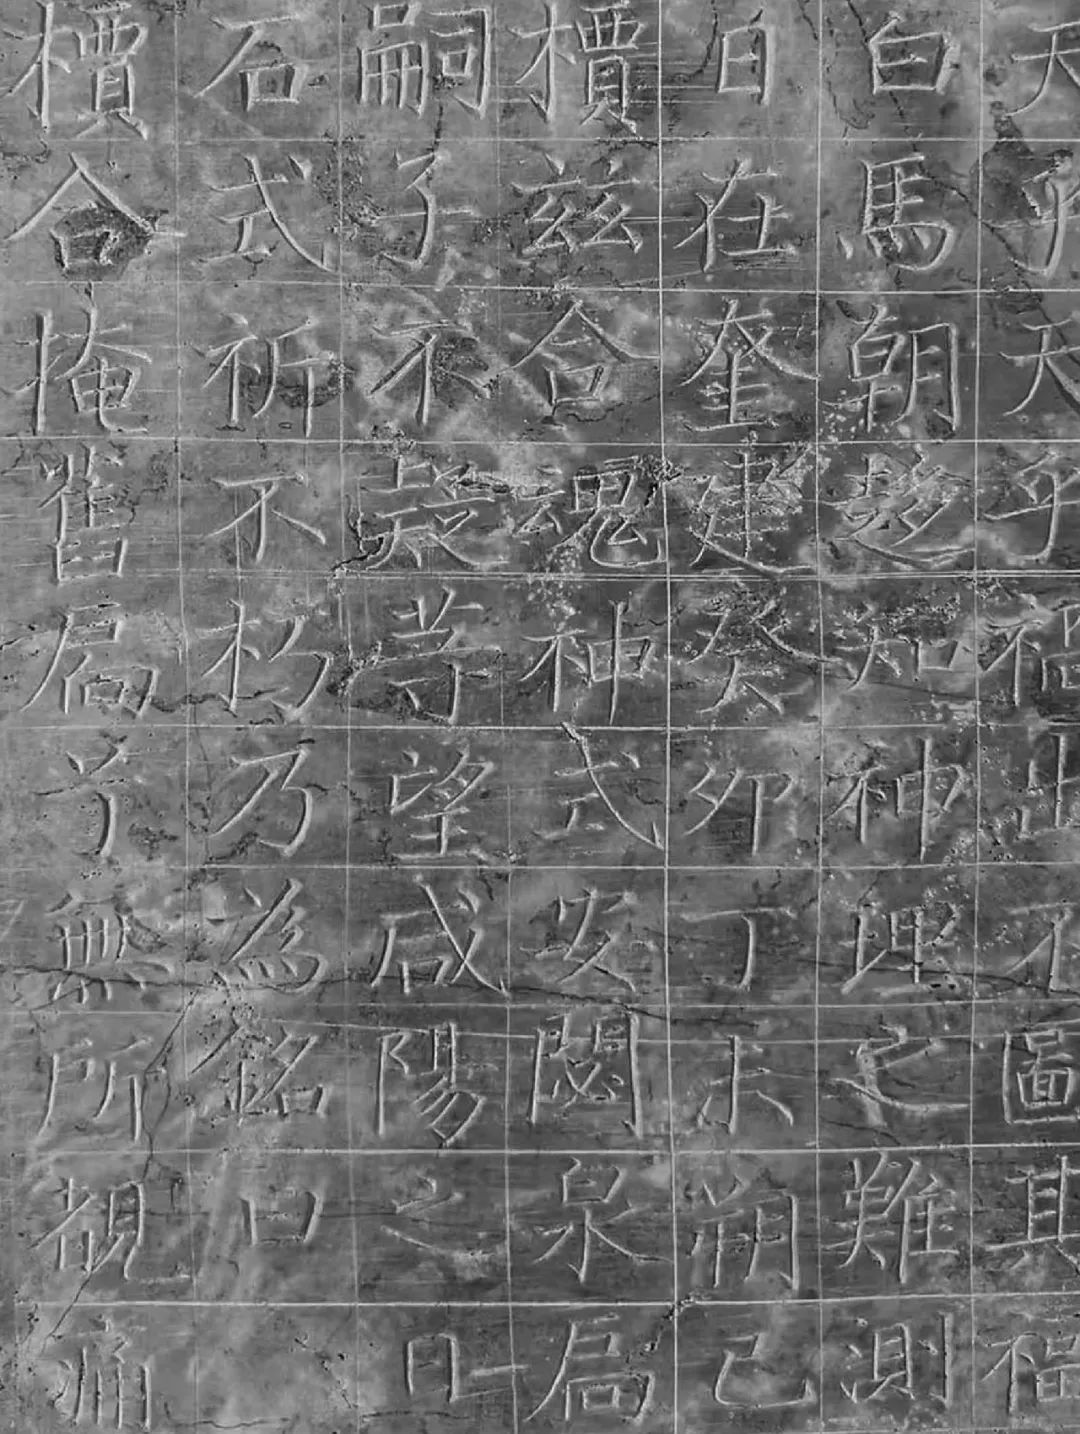 天乎天乎禍出不圖其福
白馬朝趍知神理之難測
日在奎建癸卯丁未朔己
櫝茲合魂神式安閟泉扃
嗣子不疑等望咸陽之
石式祈不朽乃為銘曰
櫝合掩舊扃兮無所覩痛